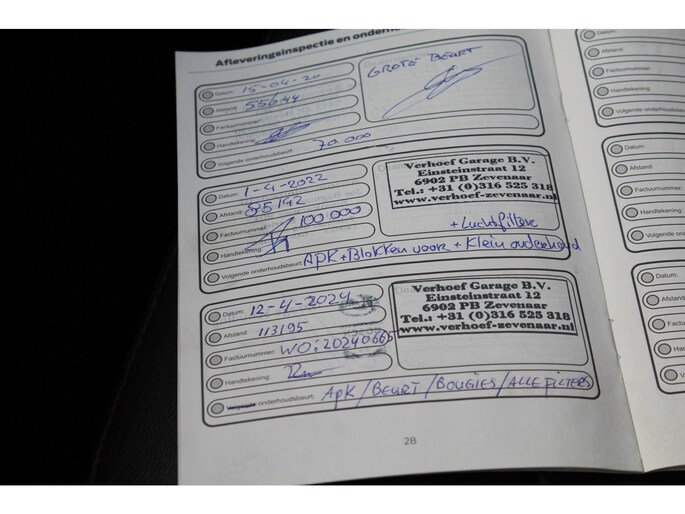 Afleveringsinspectie en onderho
Datum: 15-04-20
Afstand: 55644
GROTE BEURT
Factuurnummer:
Handtekening:
Volgende onderhoudsbeurt: 70.000
Datum: 1-4-2022
Afstand: 85142
Factuurnummer: 100 000
Handtekening:
Volgende onderhoudsbeurt: APK + Blokken voor + Klein onderhoud
+ Luchtfilter
Verhoef Garage B.V.
Einsteinstraat 12
6902 PB Zevenaar
Tel.: +31 (0)316 525 318
www.verhoef-zevenaar.nl
Datum: 12-4-2024
Afstand: 113195
Factuurnummer: WO: 20240665
Handtekening:
Volgende onderhoudsbeurt: APK / BEURT / BOUGIES / ALLE FILTERS
Verhoef Garage B.V.
Einsteinstraat 12
6902 PB Zevenaar
Tel.: +31 (0)316 525 318
www.verhoef-zevenaar.nl
28
Datum:
Afstand:
Factuurnummer:
Handtekening:
Volgende onderhoudsbeurt:
Datum:
Afstand:
Factuurnummer:
Handtekening:
Volgende onde
Datum:
Afstand:
Factuurnum
Handteken
Volgende